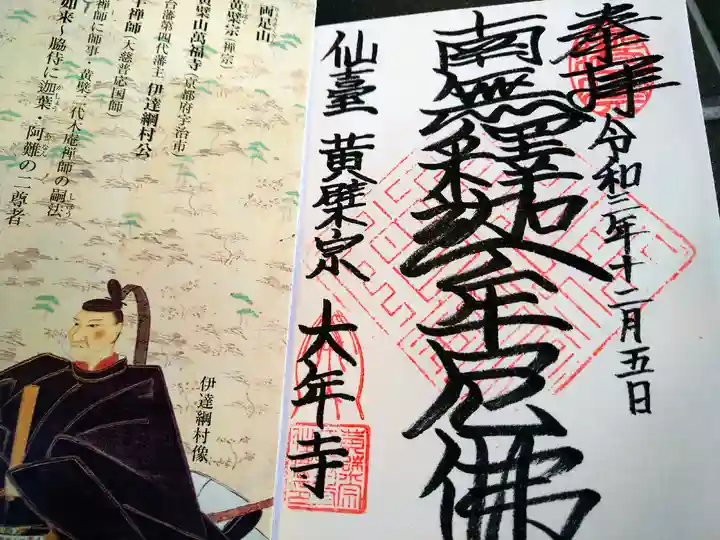 奉拝
令和二年十二月五日
南無釋迦牟尼佛
仙臺 黄檗宗 大年寺
両足山
黄檗宗(禅宗)
黄檗山萬福寺(京都府宇治市)
台藩第四代藩主 伊達綱村公
牛禅師(大慈普応国師)
禅師に師事・黄檗二代木庵禅師の嗣法
如来〜脇侍に迦葉・阿難の二尊者
伊達綱村像